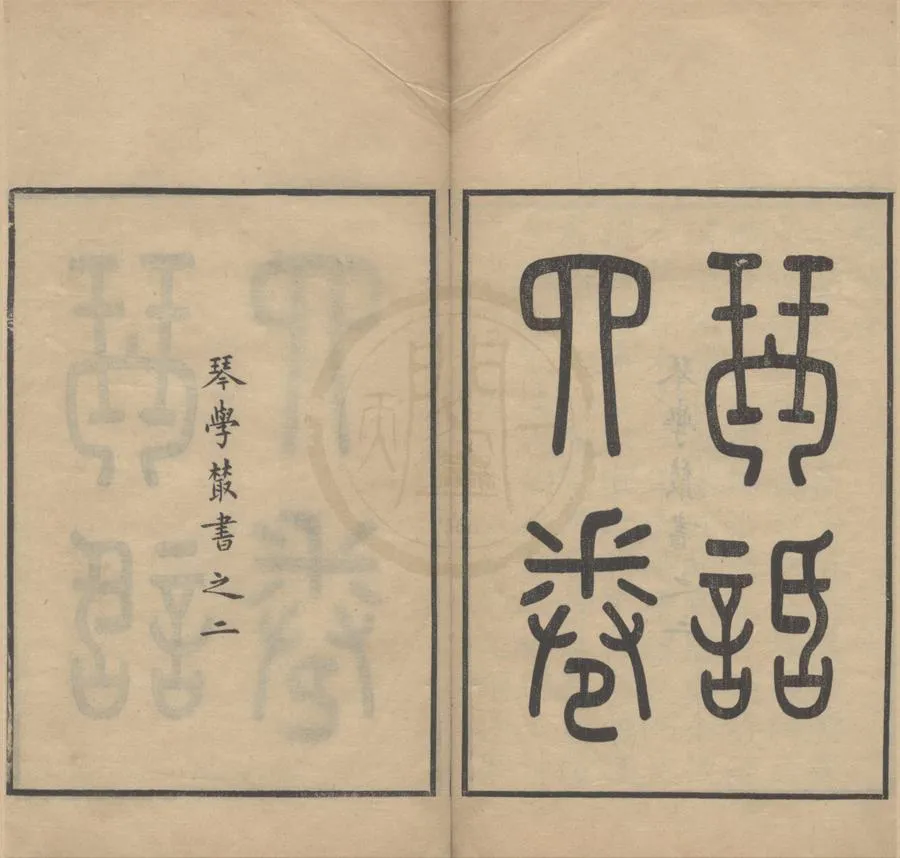 琴話
四卷
琴學叢書之二